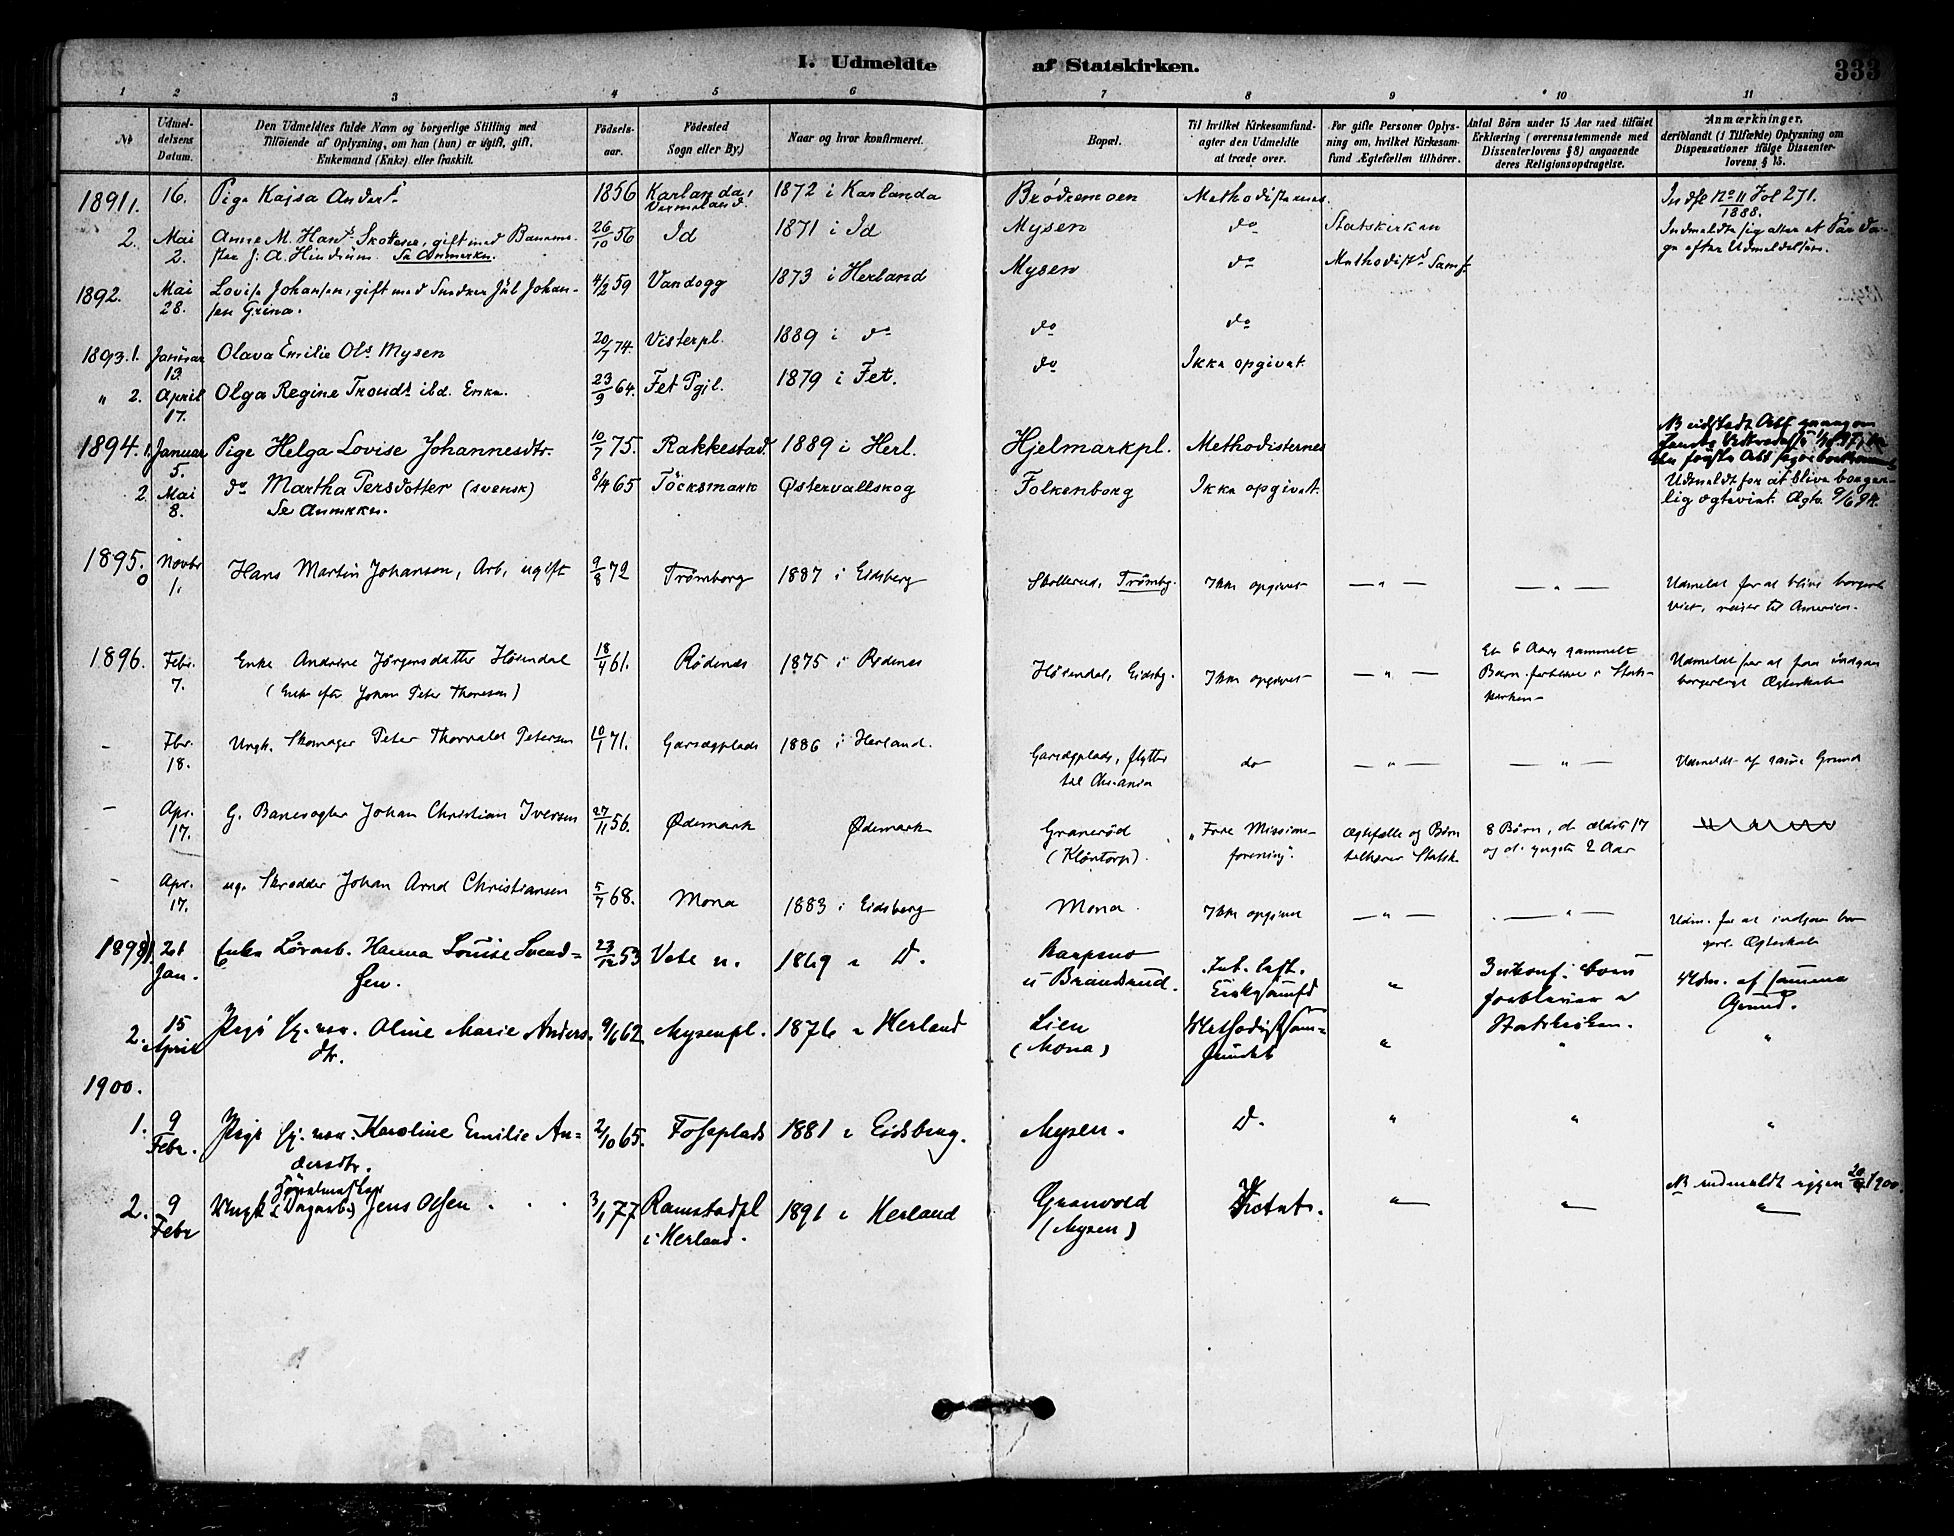 I. Udmeldte af Statskirken. 333
1 2 3 4 5 6 7 8 9 10 11
№ Udmeldelsens Datum. Den Udmeldtes fulde Navn og borgerlige Stilling med Tilføiende af Oplysning, om han (hun) er ugift, gift, Enkemand (Enke) eller fraskilt. Fødselsaar. Fødested Sogn eller By.) Naar og hvor konfirmeret. Bopæl. Til hvilket Kirkesamfund agter den Udmeldte at træde over. For gifte Personer Oplysning om, hvilket Kirkesamfund Ægtefællen tilhører. Antal Børn under 15 Aar med tilføiet Erklæring (overensstemmende med Dissenterlovens § 8) angaaende deres Religionsopdragelse. Anmærkninger, deriblandt (i Tilfælde) Oplysning om Dispensationer ifølge Dissenterlovens § 15.
1891 1. 16. Pige Kajsa Anders. 1856 Karlanda, Vermeland. 1872 i Karlanda Brödremoen Methodisternes No 11 Fol 271. 1888.
2. Mai 2. Anne M. Hans. gift med J. A. Se Anmerkn. 26/10 56 Id 1871 i Id Mysen do Statskirken Indmeldte sig atter et Par Dage efter Udmeldelsen.
1892. Mai 28. Lovise Johansen, gift med Snedker Jul Johansen Grina. 4/2 59 Vandogg 1873 i Herland Mysen do Methodist Samf.
1893. 1. Januar 13. Olava Emilie Ols. Mysen 20/7 74. Visterpl. 1889 i do do do
" 2. April 17. Olga Regine Tronds. ibd. Enke. 23/9 64. Fet Pgjl. 1879 i Fet. do Ikke opgivet.
1894. 1. Januar 5. Pige Helga Lovise Johannesdtr. 10/7 75. Rakkestad. 1889 i Herl. Hjelmarkpl. Methodisternes
2 Mai 8. do Martha Persdotter (svensk) Se Anmkn. 8/4 65 Töcksmark Østervallskog Folkenborg Ikke opgivet. Udmeldt for at blive borgerlig ægteviet. Ægtv. 9/6 94.
1895. Novbr 1. Hans Martin Johansen, Arb., ugift 9/8 72 Trømborg 1887 i Eidsberg Skollerud, Trømbg. Ikke opgivet — " — — " — Udmeldt for at blive borgerl. viet, reiser til Amerika.
1896. Febr. 7. Enke Andrine Jørgensdatter Hösendal (Enke efter Johan Peter Thoresen) 18/4 61. Rödenes 1875 i Rødenes Hösendal, Eidsbg. Ikke opgivet — " — Et 6 Aars gammelt Barn forbliver i Statskirken Udmeldt for at faa indgaa borgerligt Ægteskab
– Fbr. 18. Ungk. Skomager Peter Thorvald Petersen 10/1 71. Garsegplads 1886 i Herland. Garsegplads, flytter til Chr.ania do — " — — " — Udmeldt af samme Grund
– Apr. 17. G. Banevogter Johan Christian Iversen 27/11 56. Ødemark Ødemark Granerød (Kløntorp). "Frie Missionsforening". Ægtefælle og Børn tilhører Statsk. 8 Børn, d. ældste 17 og d. yngste 2 Aar
– Apr. 17. ug. Skrædder Johan Arnd Christiansen 5/7 68. Mona 1883 i Eidsberg Mona Ikke opgivet — " — — " — Udm. for at indgaa borgerl. Ægteskab
1898 1. 21 Jan. Enke Hanna Louise Svendsen. 23/12 53 1869 i D. " 3 ukonf. børn forbliver i Statskirken. Udm. af samme Grund.
2. 15 April Pige Oline Marie Andersdtr. 9/6 62. Mysenpl. 1876 i Herland Lien (Mona) Methodistsamfundet " " "
1900.
1. 9 Febr. Pige Karoline Emilie Andersdtr. 2/10 65. Foseplads 1881 i Eidsberg. Mysen. D. " " "
2. 9 Febr Ungk. (Dagarb.) Jens Olsen 3/1 77 Ramstadpl i Herland. 1891 i Herland Granvold (Mysen) " " NB indmeldt igjen 1900.
"